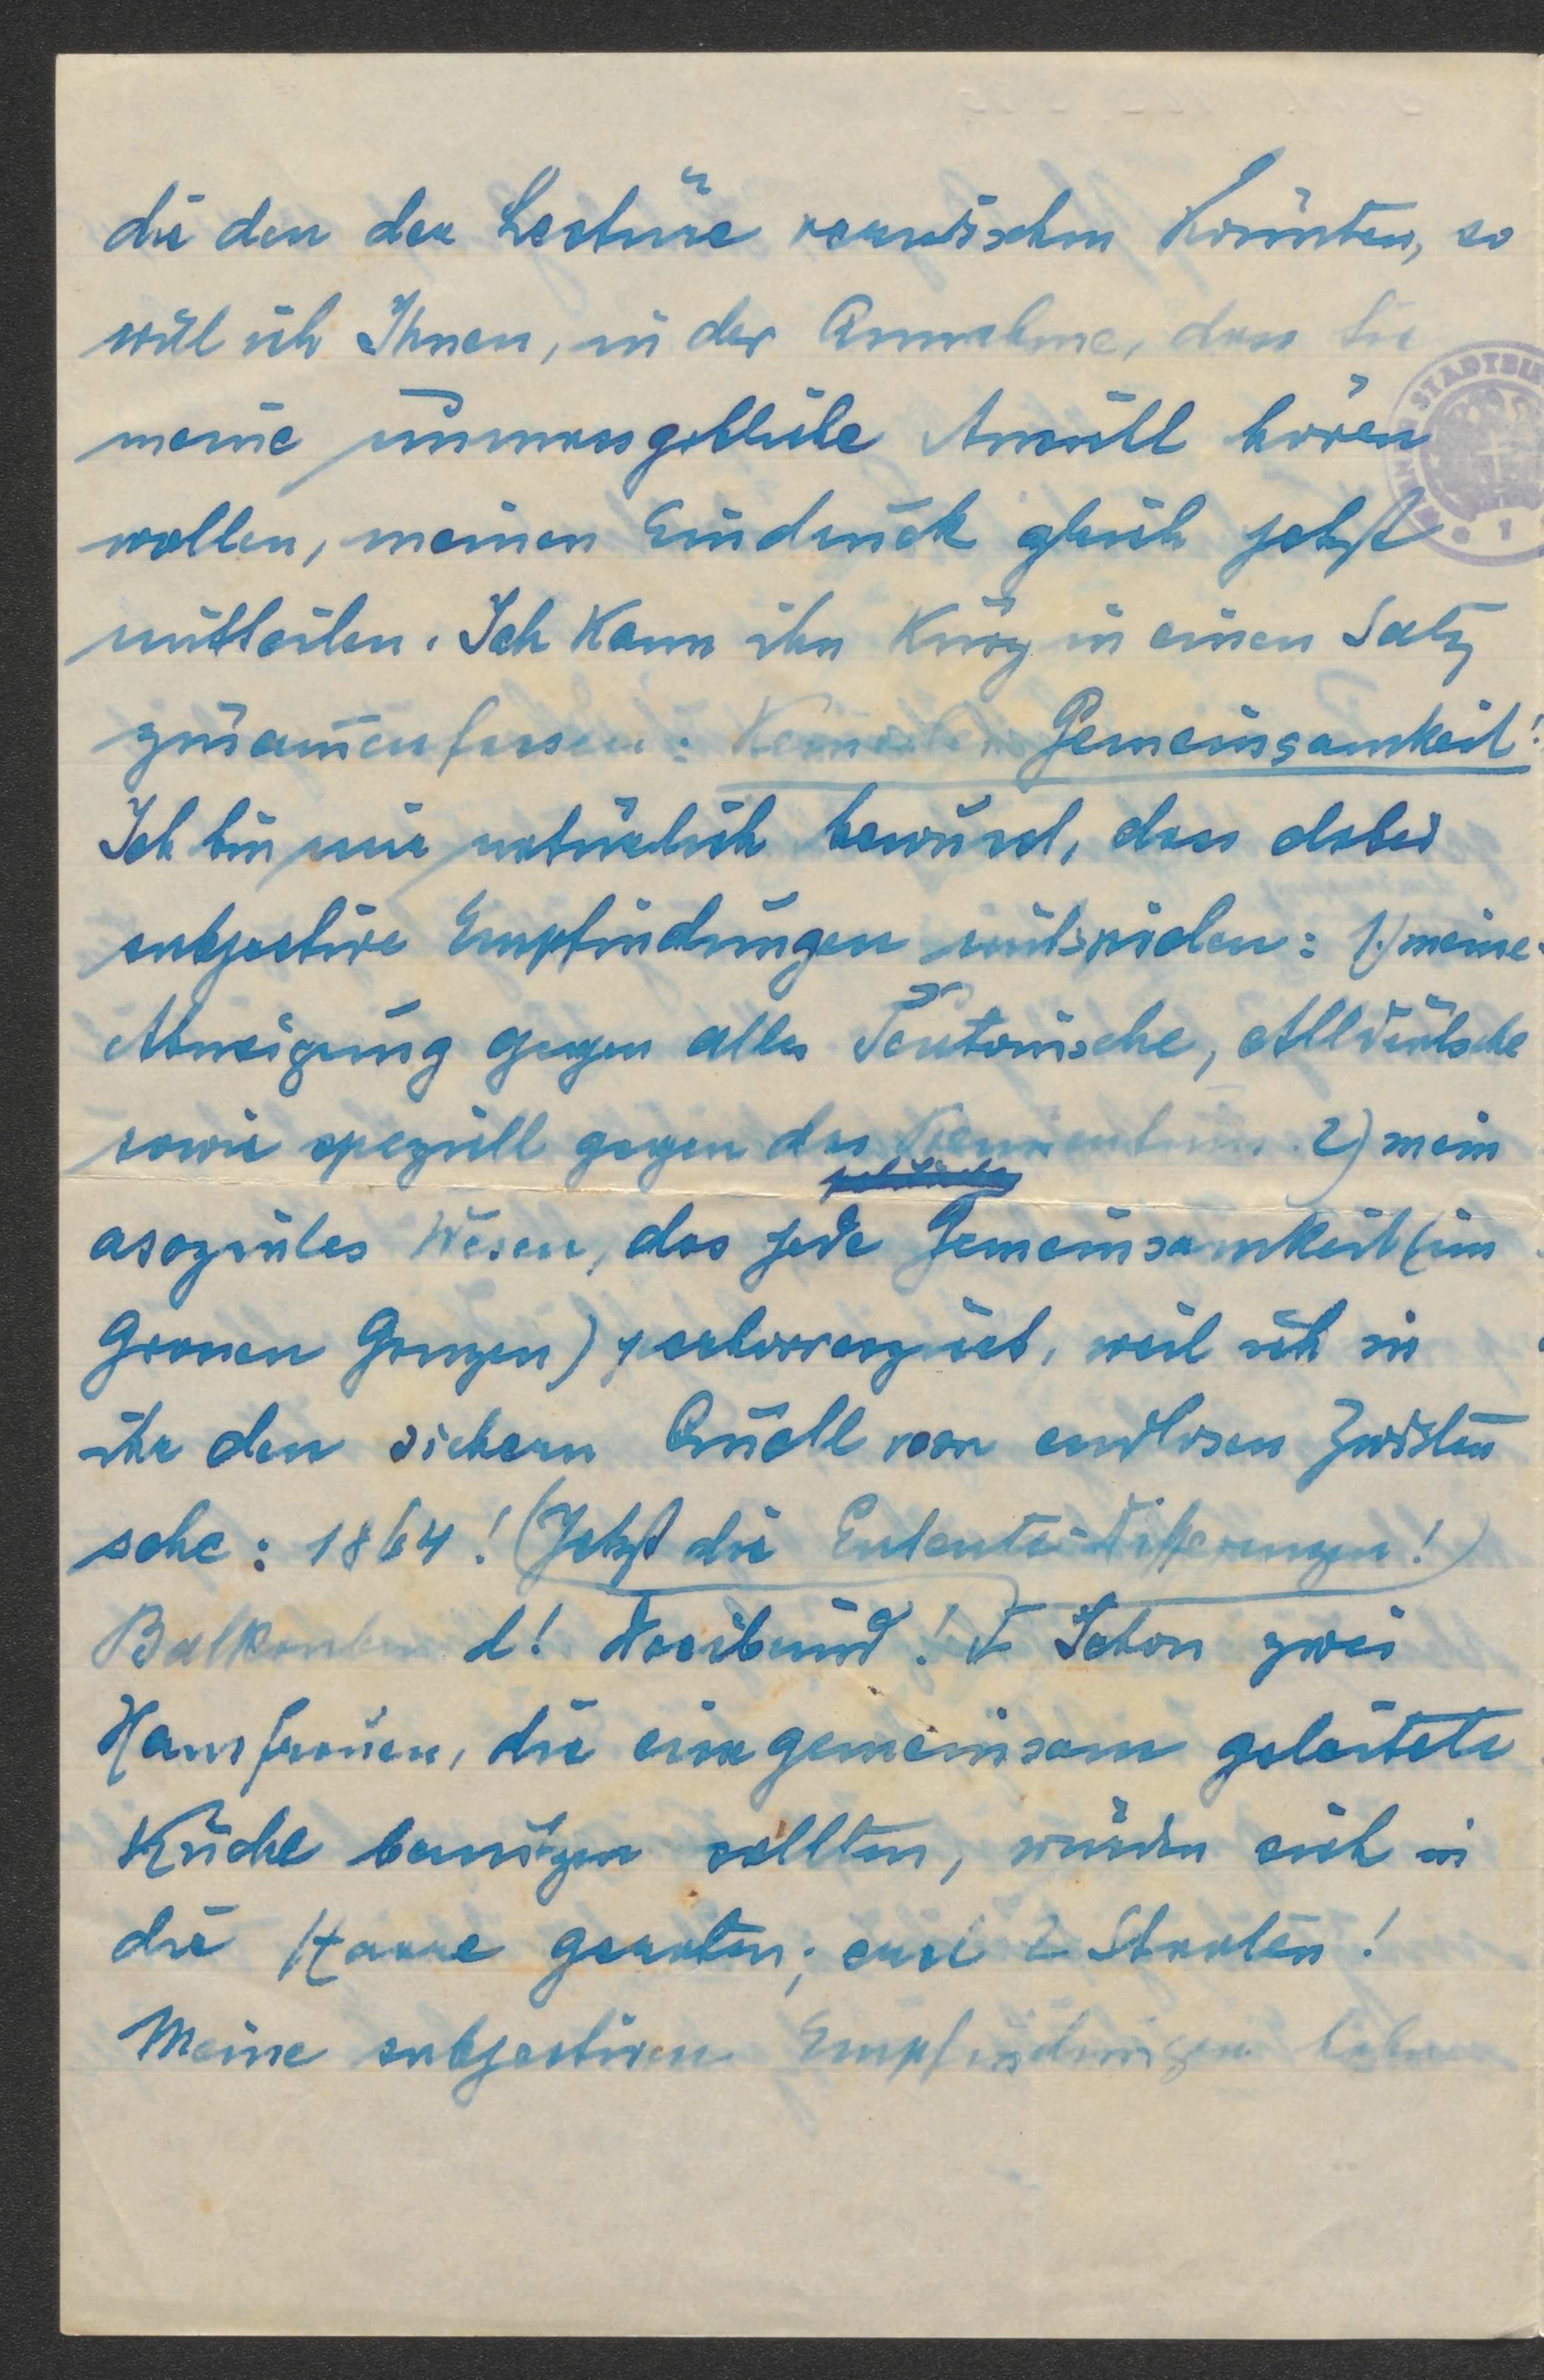 die den der Lectüre verwischen könnten, so
will ich Ihnen, in der Annahme, dass Sie
meine unmassgebliche Ansicht hören
wollen, meinen Eindruck gleich jetzt
mitteilen. Ich kann ihn kurz in einen Satz
zusam̅enfassen: Gemeinsamkeit!
Ich bin mir natürlich bewusst, dass dabei
subjective Empfindungen mitspielen: 1.) meine
Abneigung gegen alles Teutonische, Alldeutsche
sowie speziell gegen das 2) mein
asoziales Wesen, das jede Gemeinsamkeit (im
Grossen Ganzen) perhorresziert, weil ich in
ihr den sichern Quell von endlosen Zwisten
sehe: 1864! (Jetzt die Entente-Differenzen!)
Balkanbund! Dreibund! Schon zwei
Hausfrauen, die eine gemeinsam geleitete
Küche benützen sollten, würden sich in
die Haare geraten; erst 2 Staaten!
Meine subjectiven Empfindungen haben
STADTBI
1